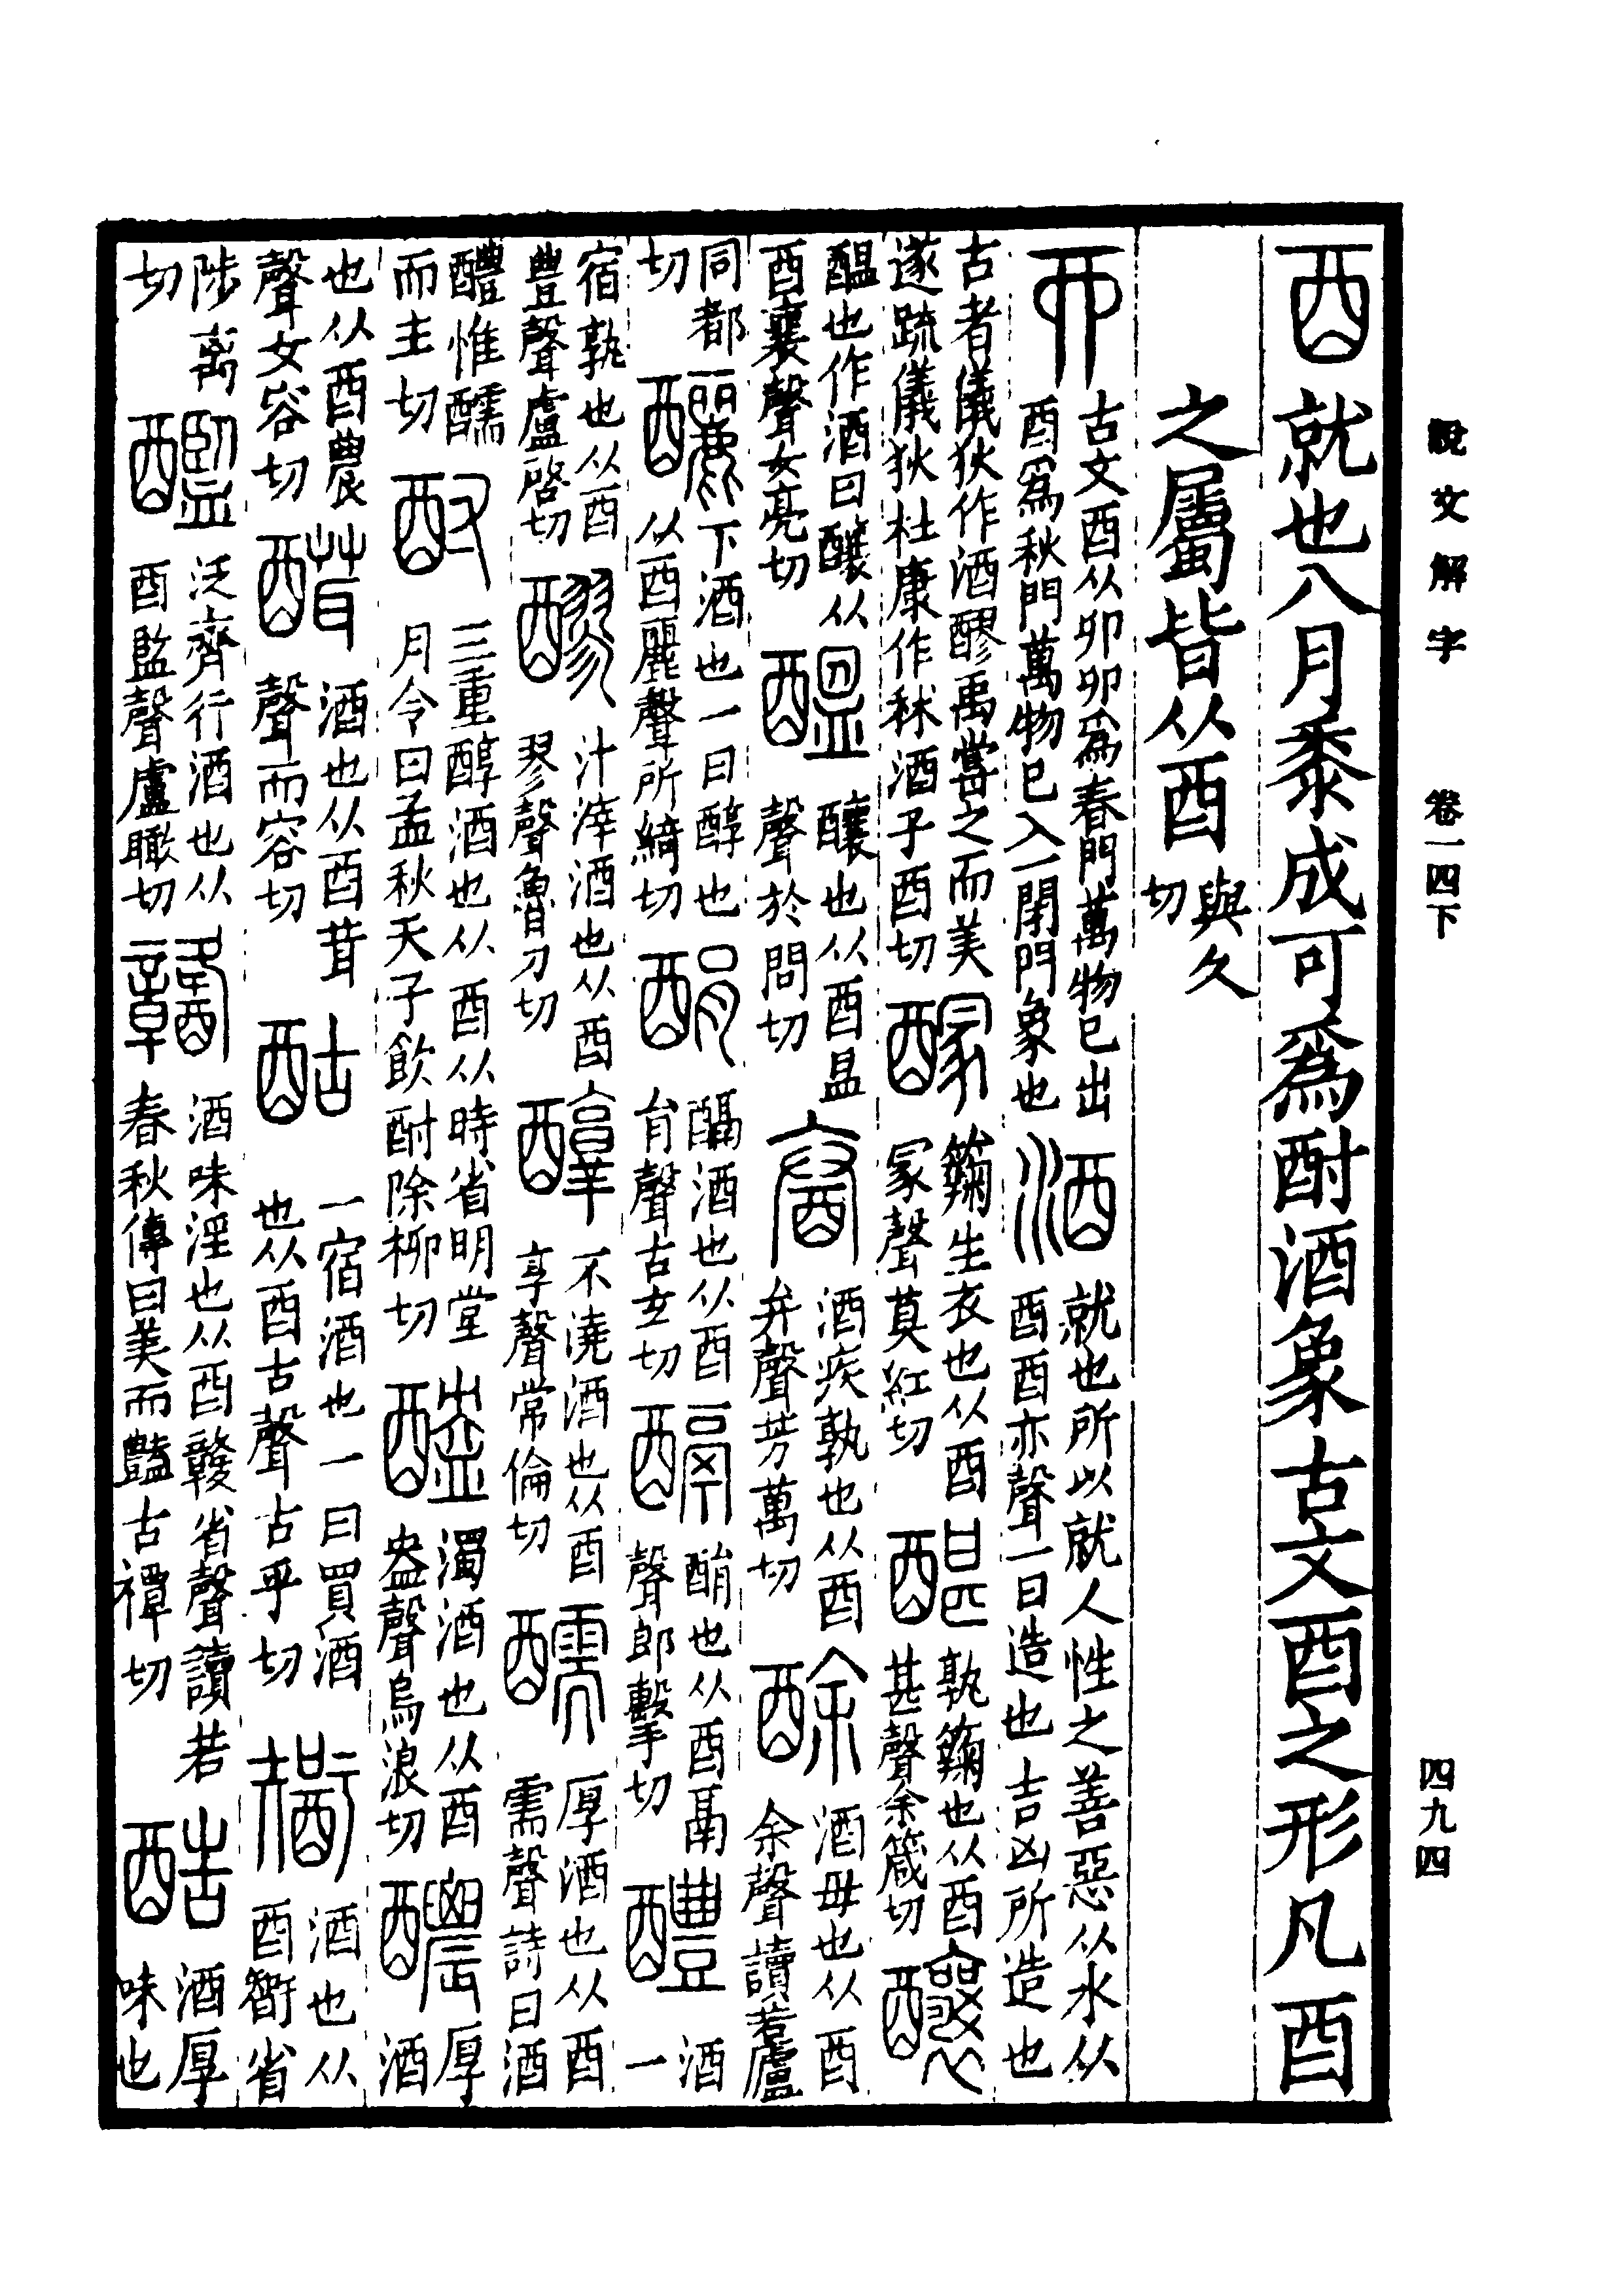 說文解字　卷一四下　四九四
酉就也八月黍成可為酎酒象古文酉之形凡酉
之屬皆从酉與久切
丣古文酉从卯卯為春門萬物已出酉為秋門萬物已入一閉門象也酒就也所以就人性之善惡从水从酉酉亦聲一曰造也吉凶所造也
古者儀狄作酒醪禹嘗之而美遂疏儀狄杜康作秫酒子酉切醿𥶶生衣也从酉冡聲莫紅切䤐孰𥶶也从酉甚聲余箴切釀
醞也作酒曰釀从酉襄聲女亮切醞釀也从酉昷聲於問切酒疾孰也从酉弁聲芳萬切酴酒母也从酉余聲讀若廬
同都切釃下酒也一曰醇也从酉麗聲所綺切酳䤘酒也从酉肙聲古玄切䤘酳也从酉鬲聲郎擊切醴酒一
宿孰也从酉豊聲盧啓切醪汁滓酒也从酉翏聲魯刀切醇不澆酒也从酉享聲常倫切醹厚酒也从酉需聲詩曰酒
醴惟醹而主切酎三重醇酒也从酉从時省明堂月令曰孟秋天子飲酎除柳切醠濁酒也从酉盎聲烏浪切醲厚酒
也从酉農聲女容切酒也从酉茸聲而容切酤一宿酒也一曰買酒也从酉古聲古乎切酒也从酉省
陟离切䤜泛齊行酒也从酉監聲盧瞰切酒味淫也从酉竷省聲讀若春秋傳曰美而豔古禫切酷酒厚味也